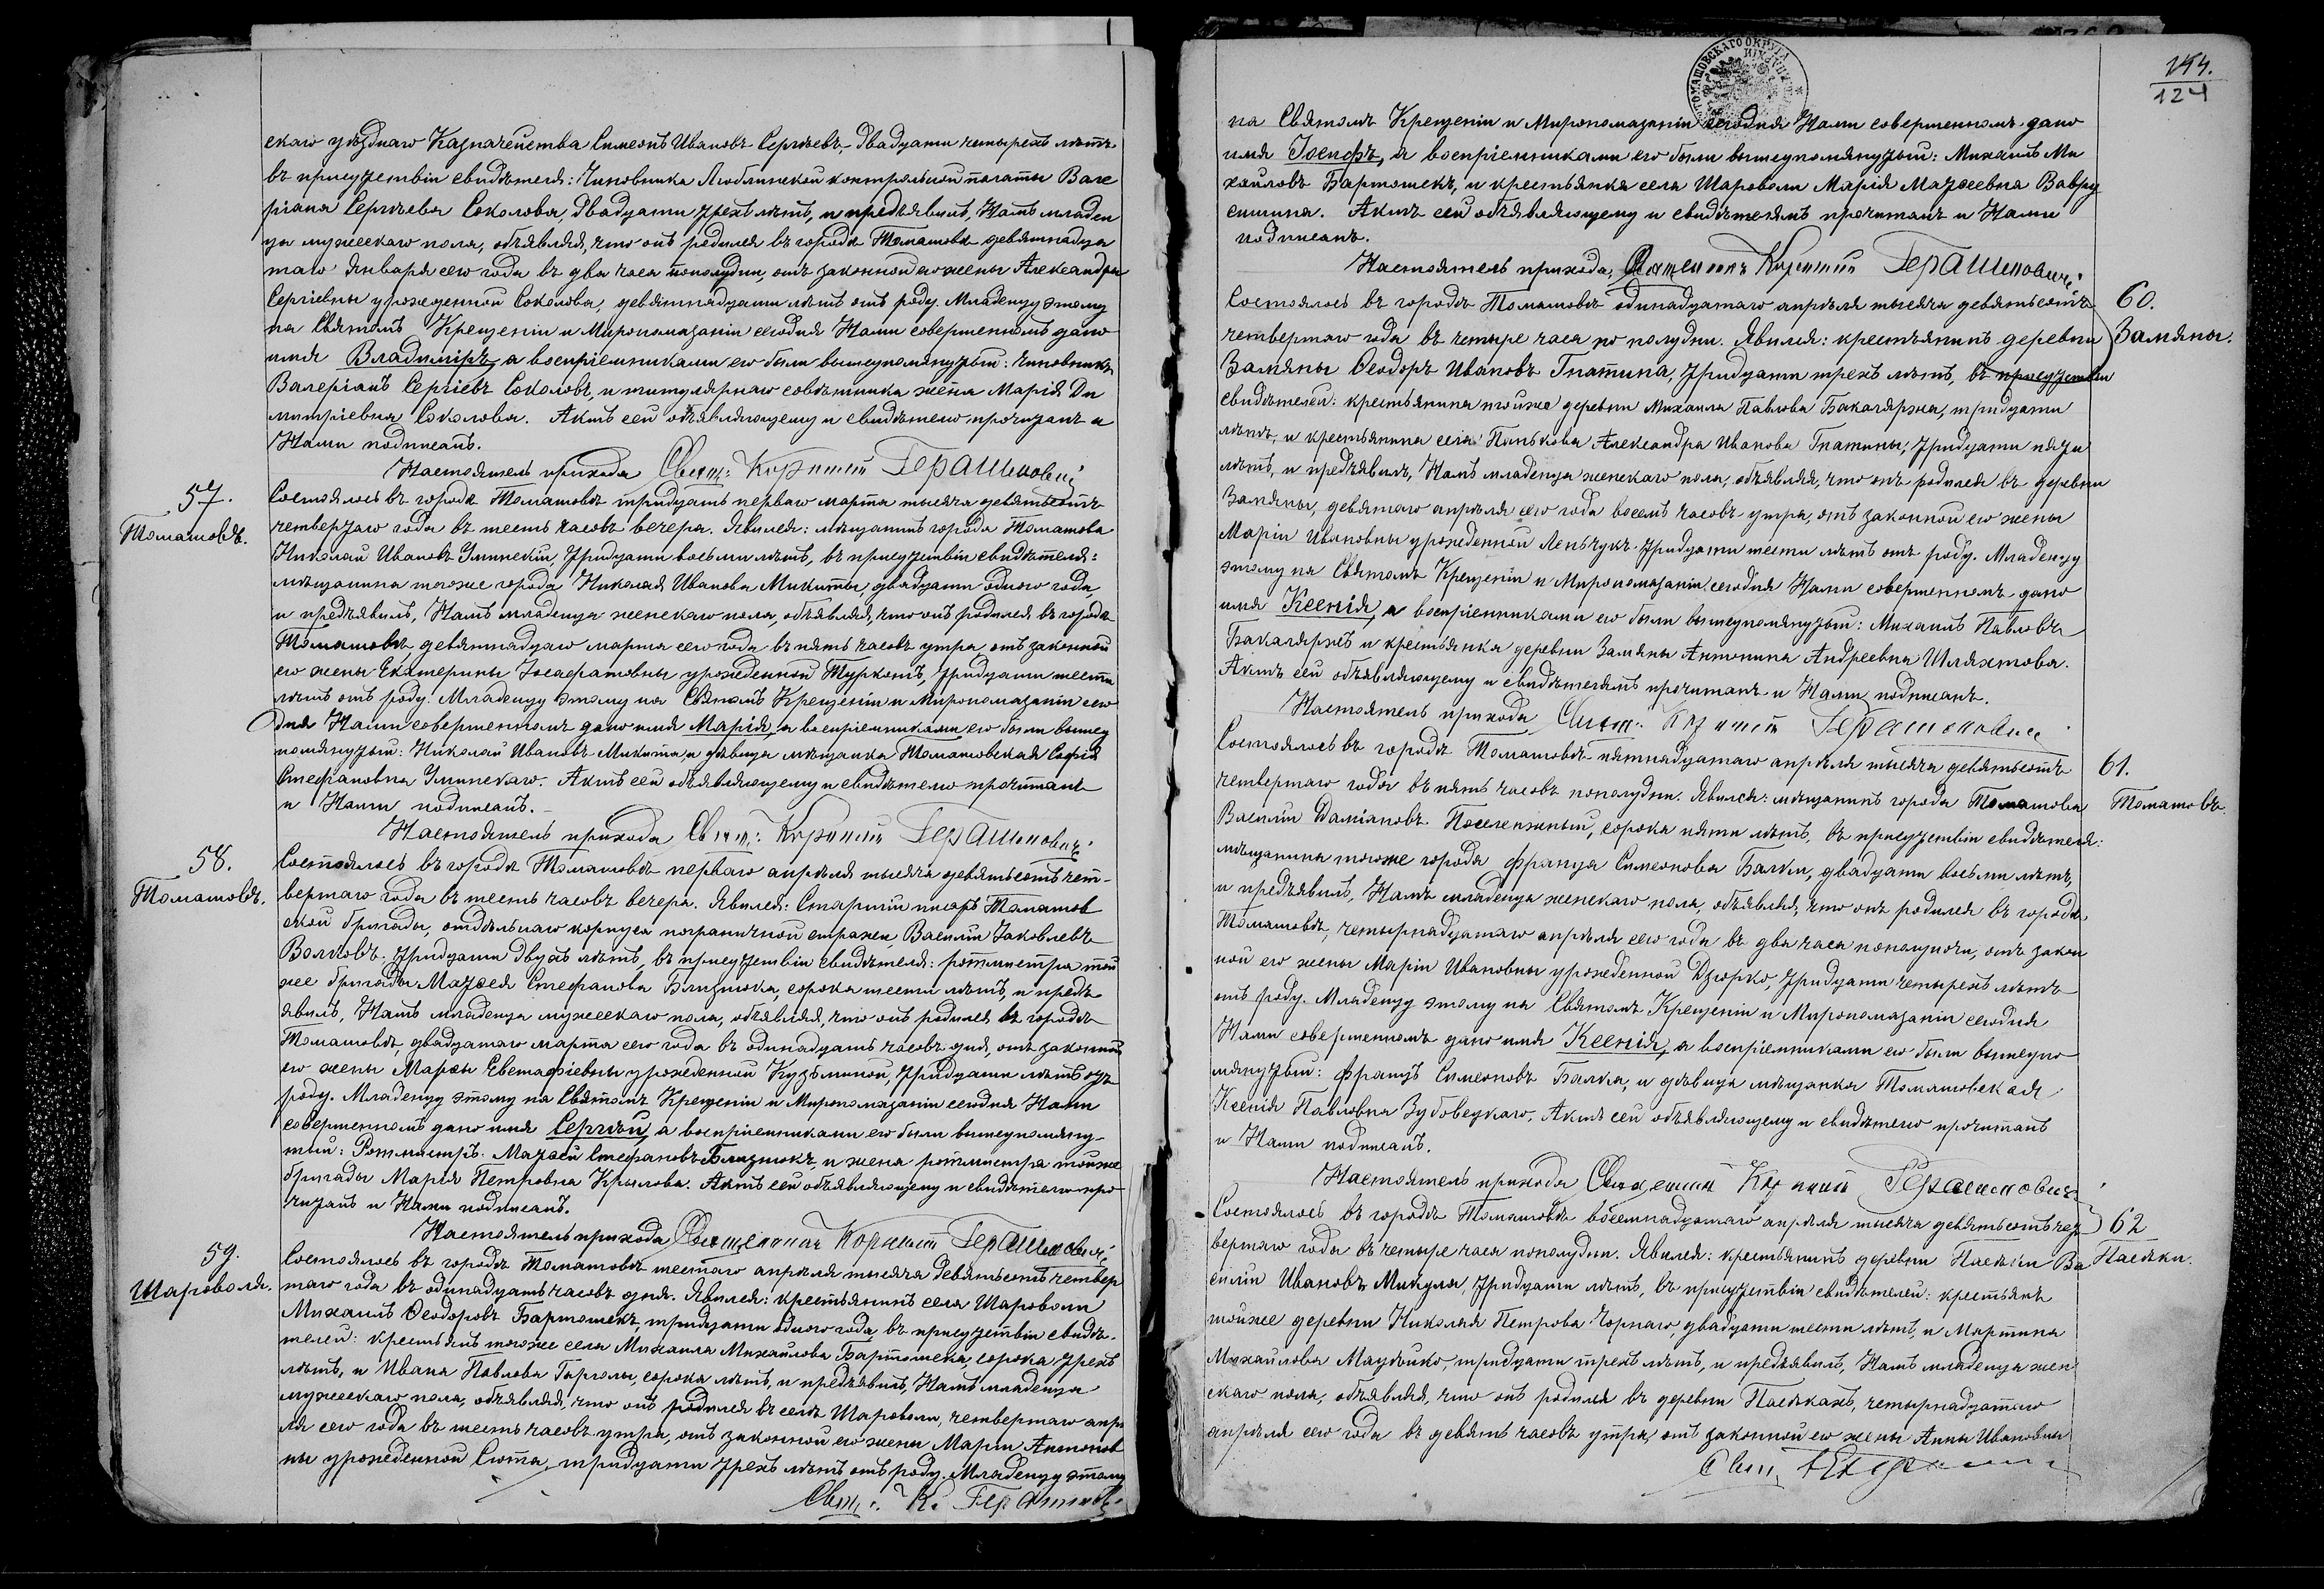 скаго уѣзднаго Казначейства Симеонъ Ивановъ Сергѣевъ, двадцати четырехъ лѣтъ,
въ присутствіи свидѣтеля: Чиновника Люблинской контрольной палаты Вале
ріана Сергѣева Соколова, двадцати трехъ лѣтъ, и предъявилъ, Намъ младен
ца мужескаго пола, объявляя, что онъ родился въ городѣ Томашовѣ девятнадца
таго Января сего года въ два часа пополудни, отъ законной его жены Александры
Сергіевны урожденной Соколова, девятнадцати лѣтъ отъ роду. Младенцу этому
на Святомъ Крещеніи и Миропомазаніи сегодня Нами совершенномъ дано
имя Владиміръ, а воспріемниками его были вышеупомянутый: чиновникъ
Валеріанъ Сергіевъ Соколовъ, и титулярнаго совѣтника жена Марія Ди
митріевна Соколова. Актъ сей объявляющему и свидѣтелю прочитанъ и
Нами подписанъ.
Настоятель прихода Свящ: Корнилій Герашиновичъ
57.
Томашовъ.
Состоялось въ городѣ Томашовѣ тридцать перваго марта тысяча девятьсотъ
четвертаго года въ шесть часовъ вечера. Явился: мѣщанинъ города Томашова
Николай Ивановъ Уминскій, тридцати восьми лѣтъ, въ присутствіи свидѣтеля:
мѣщанина тогоже города Николая Иванова Микиты, двадцати одного года
и предъявилъ, Намъ младенца женскаго пола, объявляя, что онъ родился въ городѣ
Томашовѣ, девятнадцаго марта сего года въ пять часовъ утра, отъ законной
его жены Екатерины Іосафатовны урожденной Турконъ, тридцати шести
лѣтъ отъ роду. Младенцу этому на Святомъ Крещеніи и Миропомазаніи сего
дня Нами совершенномъ дано имя Марія, а воспріемниками его были вышеу
помянутый: Николай Ивановъ Микита, и дѣвица мѣщанка Томашовская Софія
Стефановна Уминскаго. Актъ сей объявляющему и свидѣтелю прочитанъ
и Нами подписанъ.
Настоятель прихода Свящ: Корнилій Герашиновичъ
58.
Томашовъ.
Состоялось въ городѣ Томашовѣ перваго апрѣля тысяча девятьсотъ чет-
вертаго года въ шесть часовъ вечера. Явился: Старшій писарь Томашов
ской бригады, отдѣльнаго корпуса пограничной стражи, Василій Іаковлевъ
Волковъ, тридцати двухъ лѣтъ, въ присутствіи свидѣтеля: ротмистра той
же бригады Матѳея Стефанова Близнюка, сорока шести лѣтъ, и предъ
явилъ, Намъ младенца мужескаго пола, объявляя, что онъ родился въ городѣ
Томашовѣ, двадцатаго марта сего года въ одинадцать часовъ дня, отъ законной
его жены Марѳы Евстафіевны урожденной Кузьминой, тридцати лѣтъ отъ
роду. Младенцу этому на Святомъ Крещеніи и Миропомазаніи сегодня Нами
совершенномъ дано имя Сергѣй, а воспріемниками его были вышеупомяну-
тый: Ротмистръ Матѳей Стефановъ Близнюкъ, и жена ротмистра тойже
бригады Марія Петровна Крылова. Актъ сей объявляющему и свидѣтелю про
читанъ и Нами подписанъ.
Настоятель прихода Священникъ Корнилій Герашиновичъ
59.
Шароволя.
Состоялось въ городѣ Томашовѣ шестаго апрѣля тысяча девятьсотъ четвер
таго года въ одинадцать часовъ дня. Явился: крестьянинъ села Шароволи
Михаилъ Ѳеодоровъ Бартошекъ, тридцати одного года, въ присутствіи свидѣ-
телей: крестьянъ тогоже села Михаила Михайлова Бартошека, сорока трехъ
лѣтъ, и Ивана Павлова Гарголы, сорока лѣтъ, и предъявилъ, Намъ младенца
мужескаго пола, объявляя, что онъ родился въ селѣ Шароволи, четвертаго апрѣ
ля сего года въ шесть часовъ утра, отъ законной его жены Маріи Антонов
ны урожденной Сюта, тридцати трехъ лѣтъ отъ роду. Младенцу этому
Свящ: К. Герашинов
144.
124
на Святомъ Крещеніи и Миропомазаніи сегодня Нами совершенномъ дано
имя Іосифъ, а воспріемниками его были вышеупомянутый: Михаилъ Ми
хайловъ Бартошекъ, и крестьянка села Шароволи Марія Матѳеевна Вавру
сишина. Актъ сей объявляющему и свидѣтелямъ прочитанъ и Нами
подписанъ.
Настоятель прихода, Священникъ Корнилій Герашиновичъ
60.
Замяны.
Состоялось въ городѣ Томашовѣ одинадцатаго апрѣля тысяча девятьсотъ
четвертаго года въ четыре часа по полудни. Явился: крестьянинъ деревни
Замяны Ѳеодоръ Ивановъ Гнатина, тридцати трехъ лѣтъ, въ присутствіи
свидѣтелей: крестьянина тойже деревни Михаила Павлова Бакаляржа, тридцати
лѣтъ, и крестьянина села Панькова Александра Иванова Гнатины, тридцати пяти
лѣтъ, и предъявилъ, Намъ младенца женскаго пола, объявляя, что онъ родился въ деревни
Замяны, девятаго апрѣля сего года восемь часовъ утра, отъ законной его жены
Маріи Ивановны урожденной Леньчукъ тридцати шести лѣтъ отъ роду. Младенцу
этому на Святомъ Крещеніи и Миропомазаніи сегодня Нами совершенномъ дано
имя Ксенія, а воспріемниками его были вышеупомянутый: Михаилъ Павловъ
Бакаляржъ и крестьянка деревни Замяны Антонина Андреевна Шляхтова.
Актъ сей объявляющему и свидѣтелямъ прочитанъ и Нами подписанъ.
Настоятель прихода Свящ: Корнилій Герашиновичъ
61.
Томашовъ.
Состоялось въ городѣ Томашовѣ пятнадцатаго апрѣля тысяча девятьсотъ
четвертаго года въ пять часовъ пополудни. Явился: мѣщанинъ города Томашова
Василій Даміановъ Поселенжный, сорока пяти лѣтъ, въ присутствіи свидѣтеля:
мѣщанина тогоже города Франца Симеонова Балки, двадцати восьми лѣтъ,
и предъявилъ, Намъ младенца женскаго пола, объявляя, что онъ родился въ городѣ
Томашовѣ, четырнадцатаго апрѣля сего года въ два часа пополуночи, отъ закон
ной его жены Маріи Ивановны урожденной Дзюрко, тридцати четырехъ лѣтъ
отъ роду. Младенцу этому на Святомъ Крещеніи и Миропомазаніи сегодня
Нами совершенномъ дано имя Ксенія, а воспріемниками его были вышеупо
мянутый: Францъ Симеоновъ Балка, и дѣвица мѣщанка Томашовская
Ксенія Павловна Зубовецкаго. Актъ сей объявляющему и свидѣтелю прочитанъ
и Нами подписанъ.
Настоятель прихода Священникъ Корнилій Герашиновичъ
62
Пасѣки.
Состоялось въ городѣ Томашовѣ восемнадцатаго апрѣля тысяча девятьсотъ чет
вертаго года въ четыре часа пополудни. Явился: крестьянинъ деревни Пасѣки Ва
силій Ивановъ Микуля, тридцати лѣтъ, въ присутствіи свидѣтелей: крестьянъ
тойже деревни Николая Петрова Чорнаго, двадцати шести лѣтъ, и Мартина
Михайлова Мацѣйко, тридцати трехъ лѣтъ, и предъявилъ, Намъ младенца жен
скаго пола, объявляя, что онъ родился въ деревни Пасѣкахъ, четырнадцатаго
апрѣля сего года въ девять часовъ утра, отъ законной его жены Анны Ивановны
Свящ.